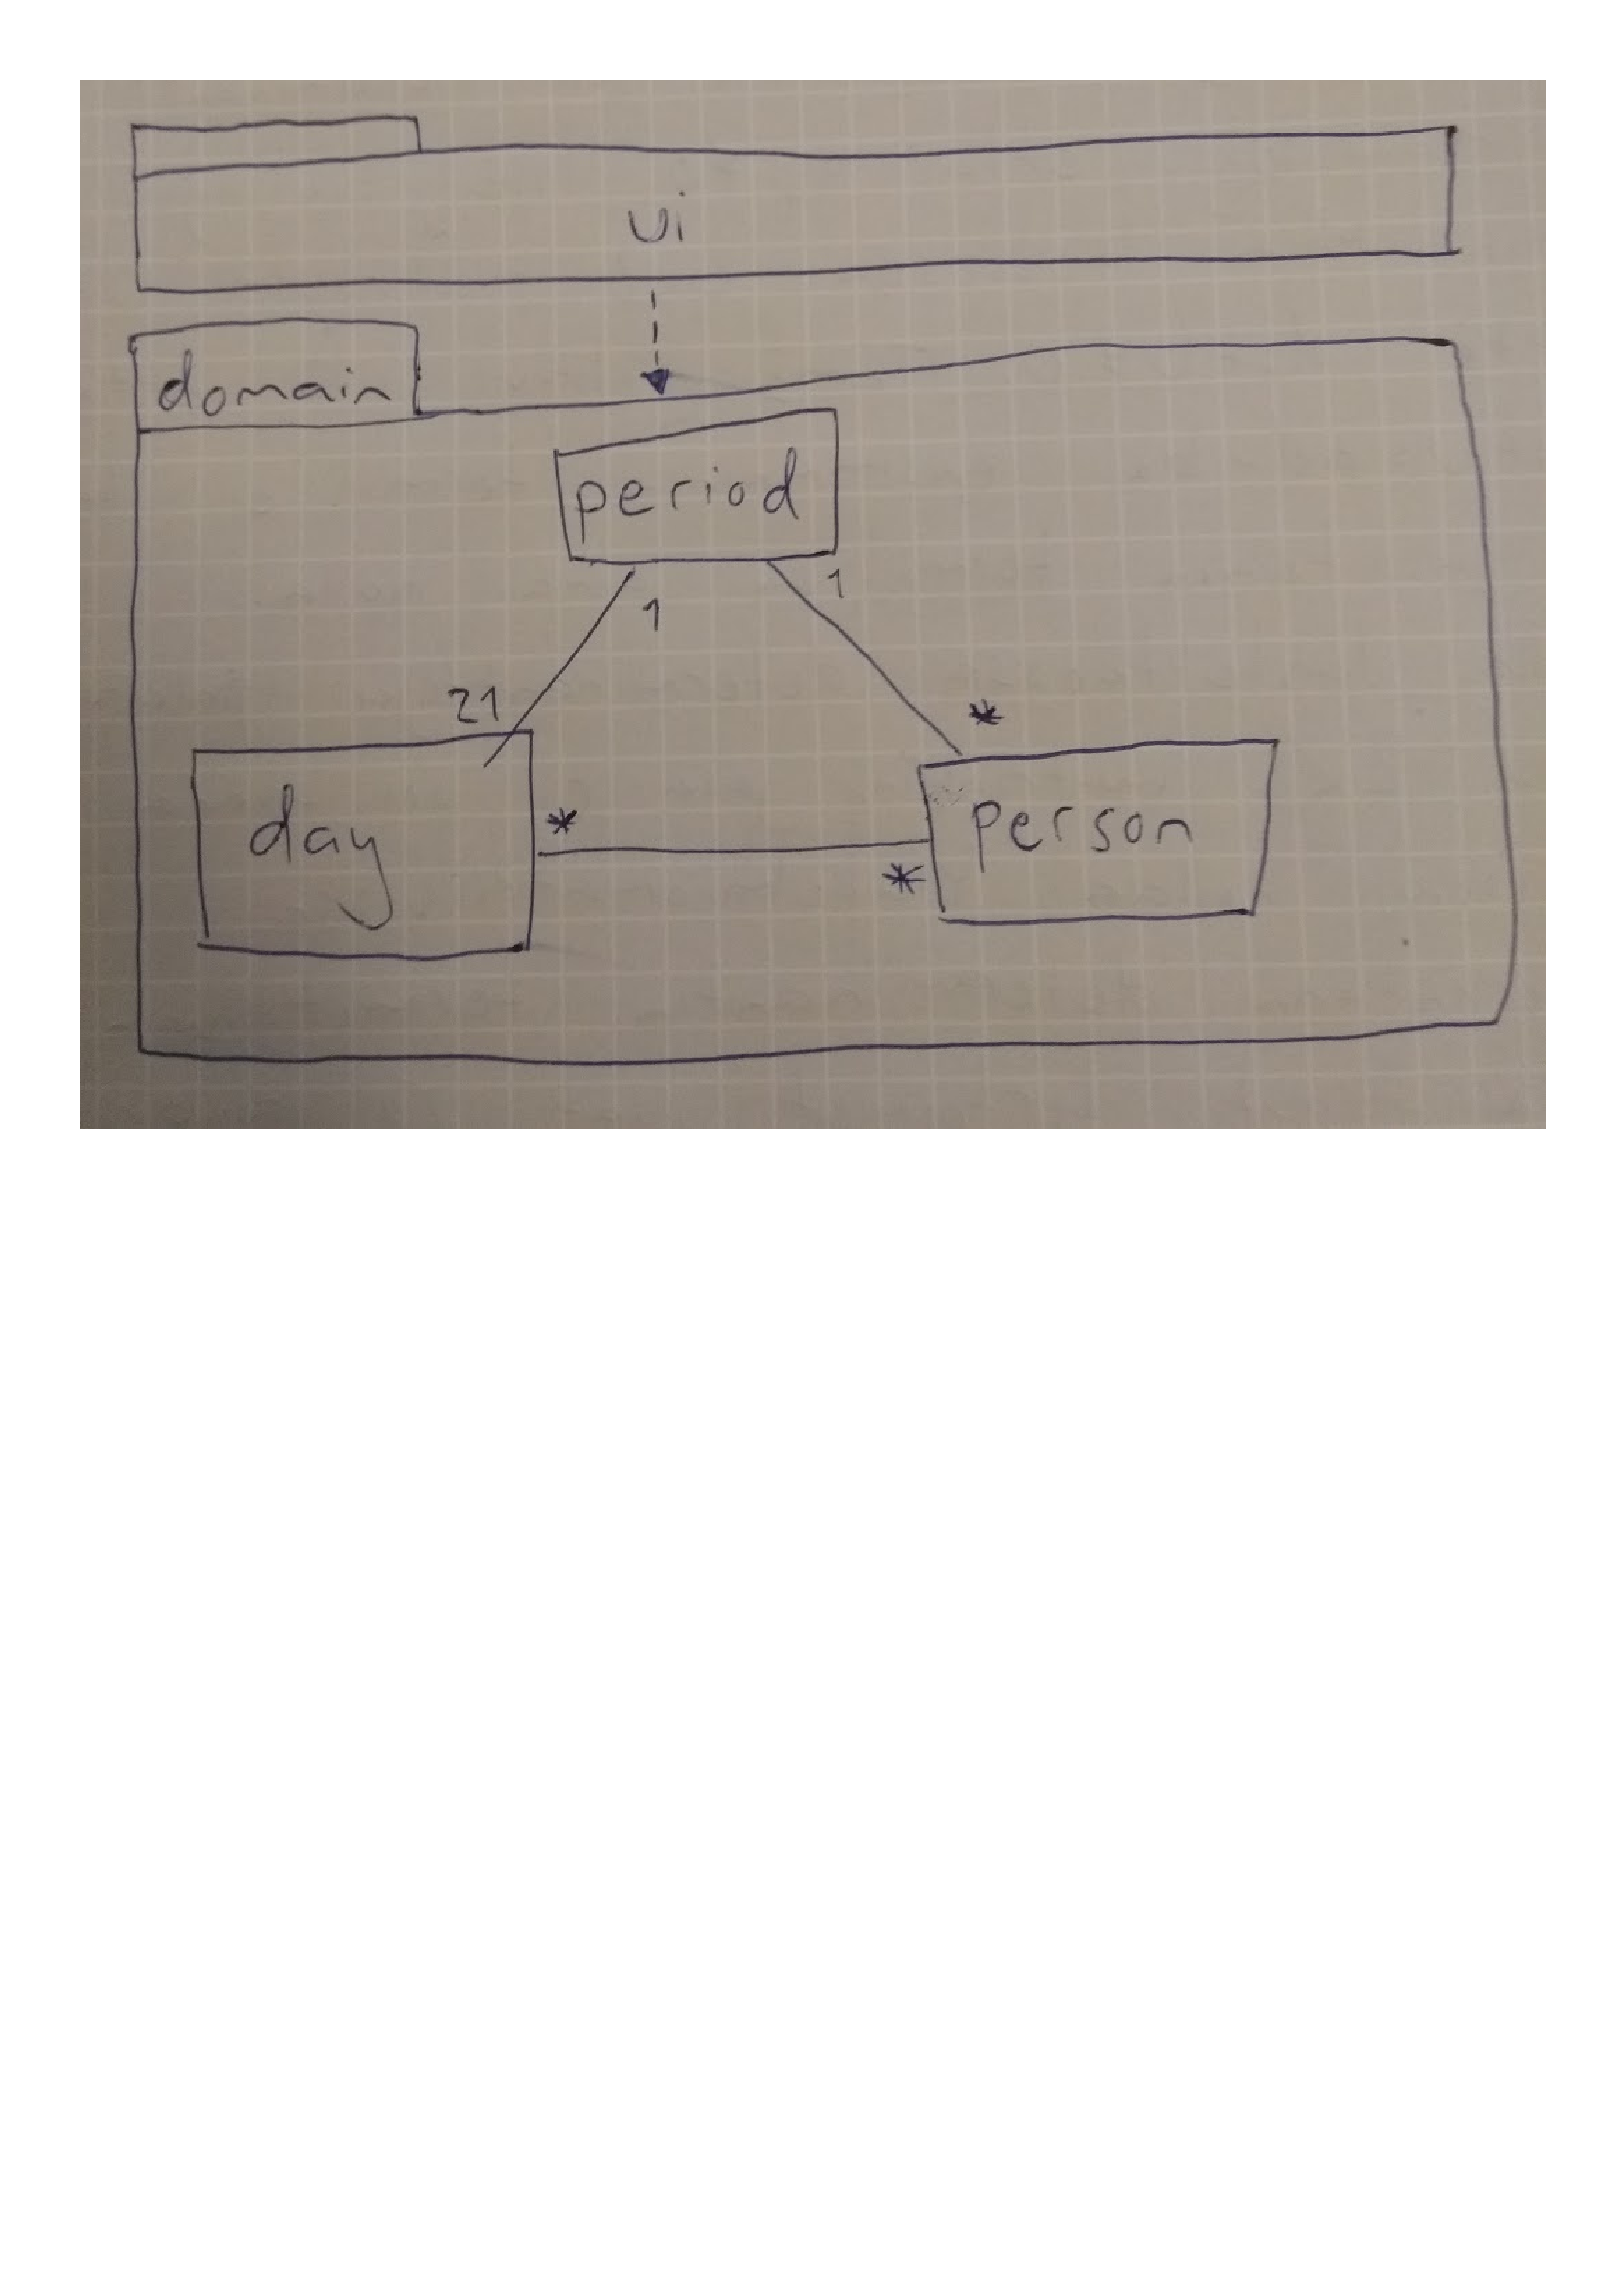 ui
domain
period
1
1
21
*
day
*
*
person